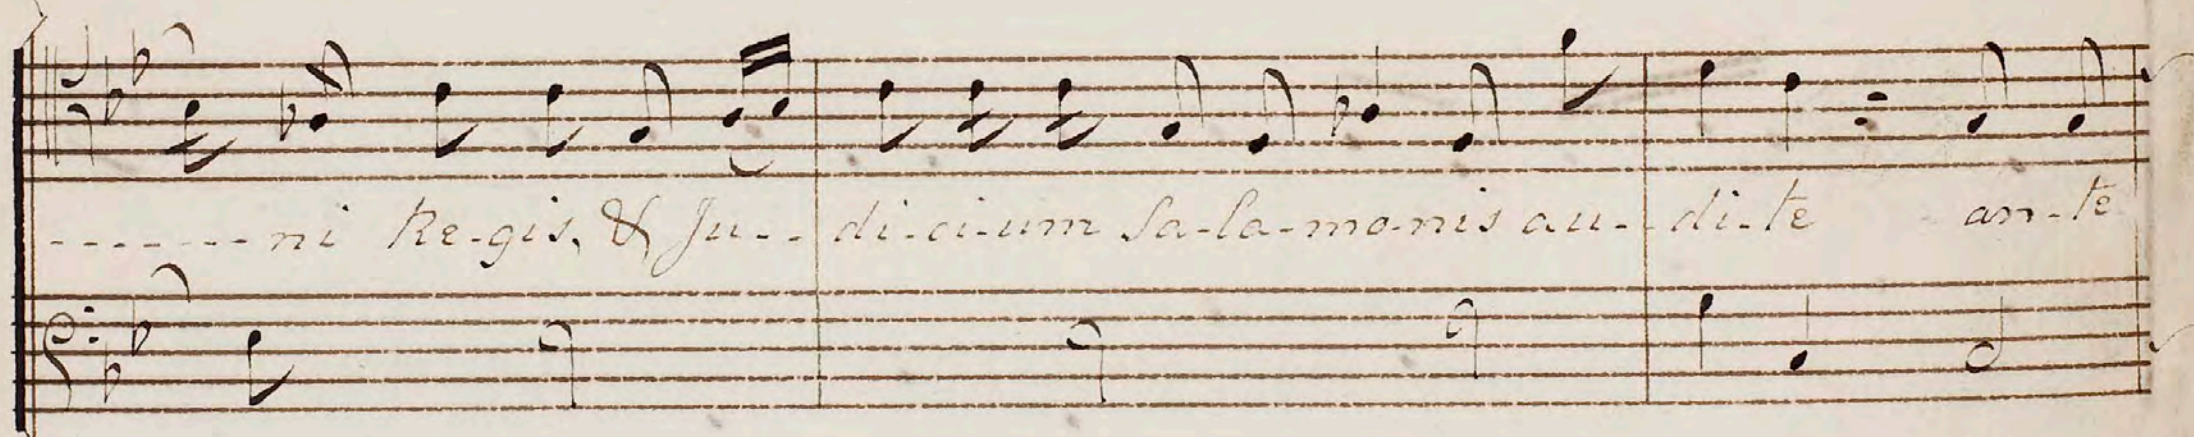 -------ni Re-gis, & Ju-- di-ci-um Sa-la-mo-nis au-- di-te an-te